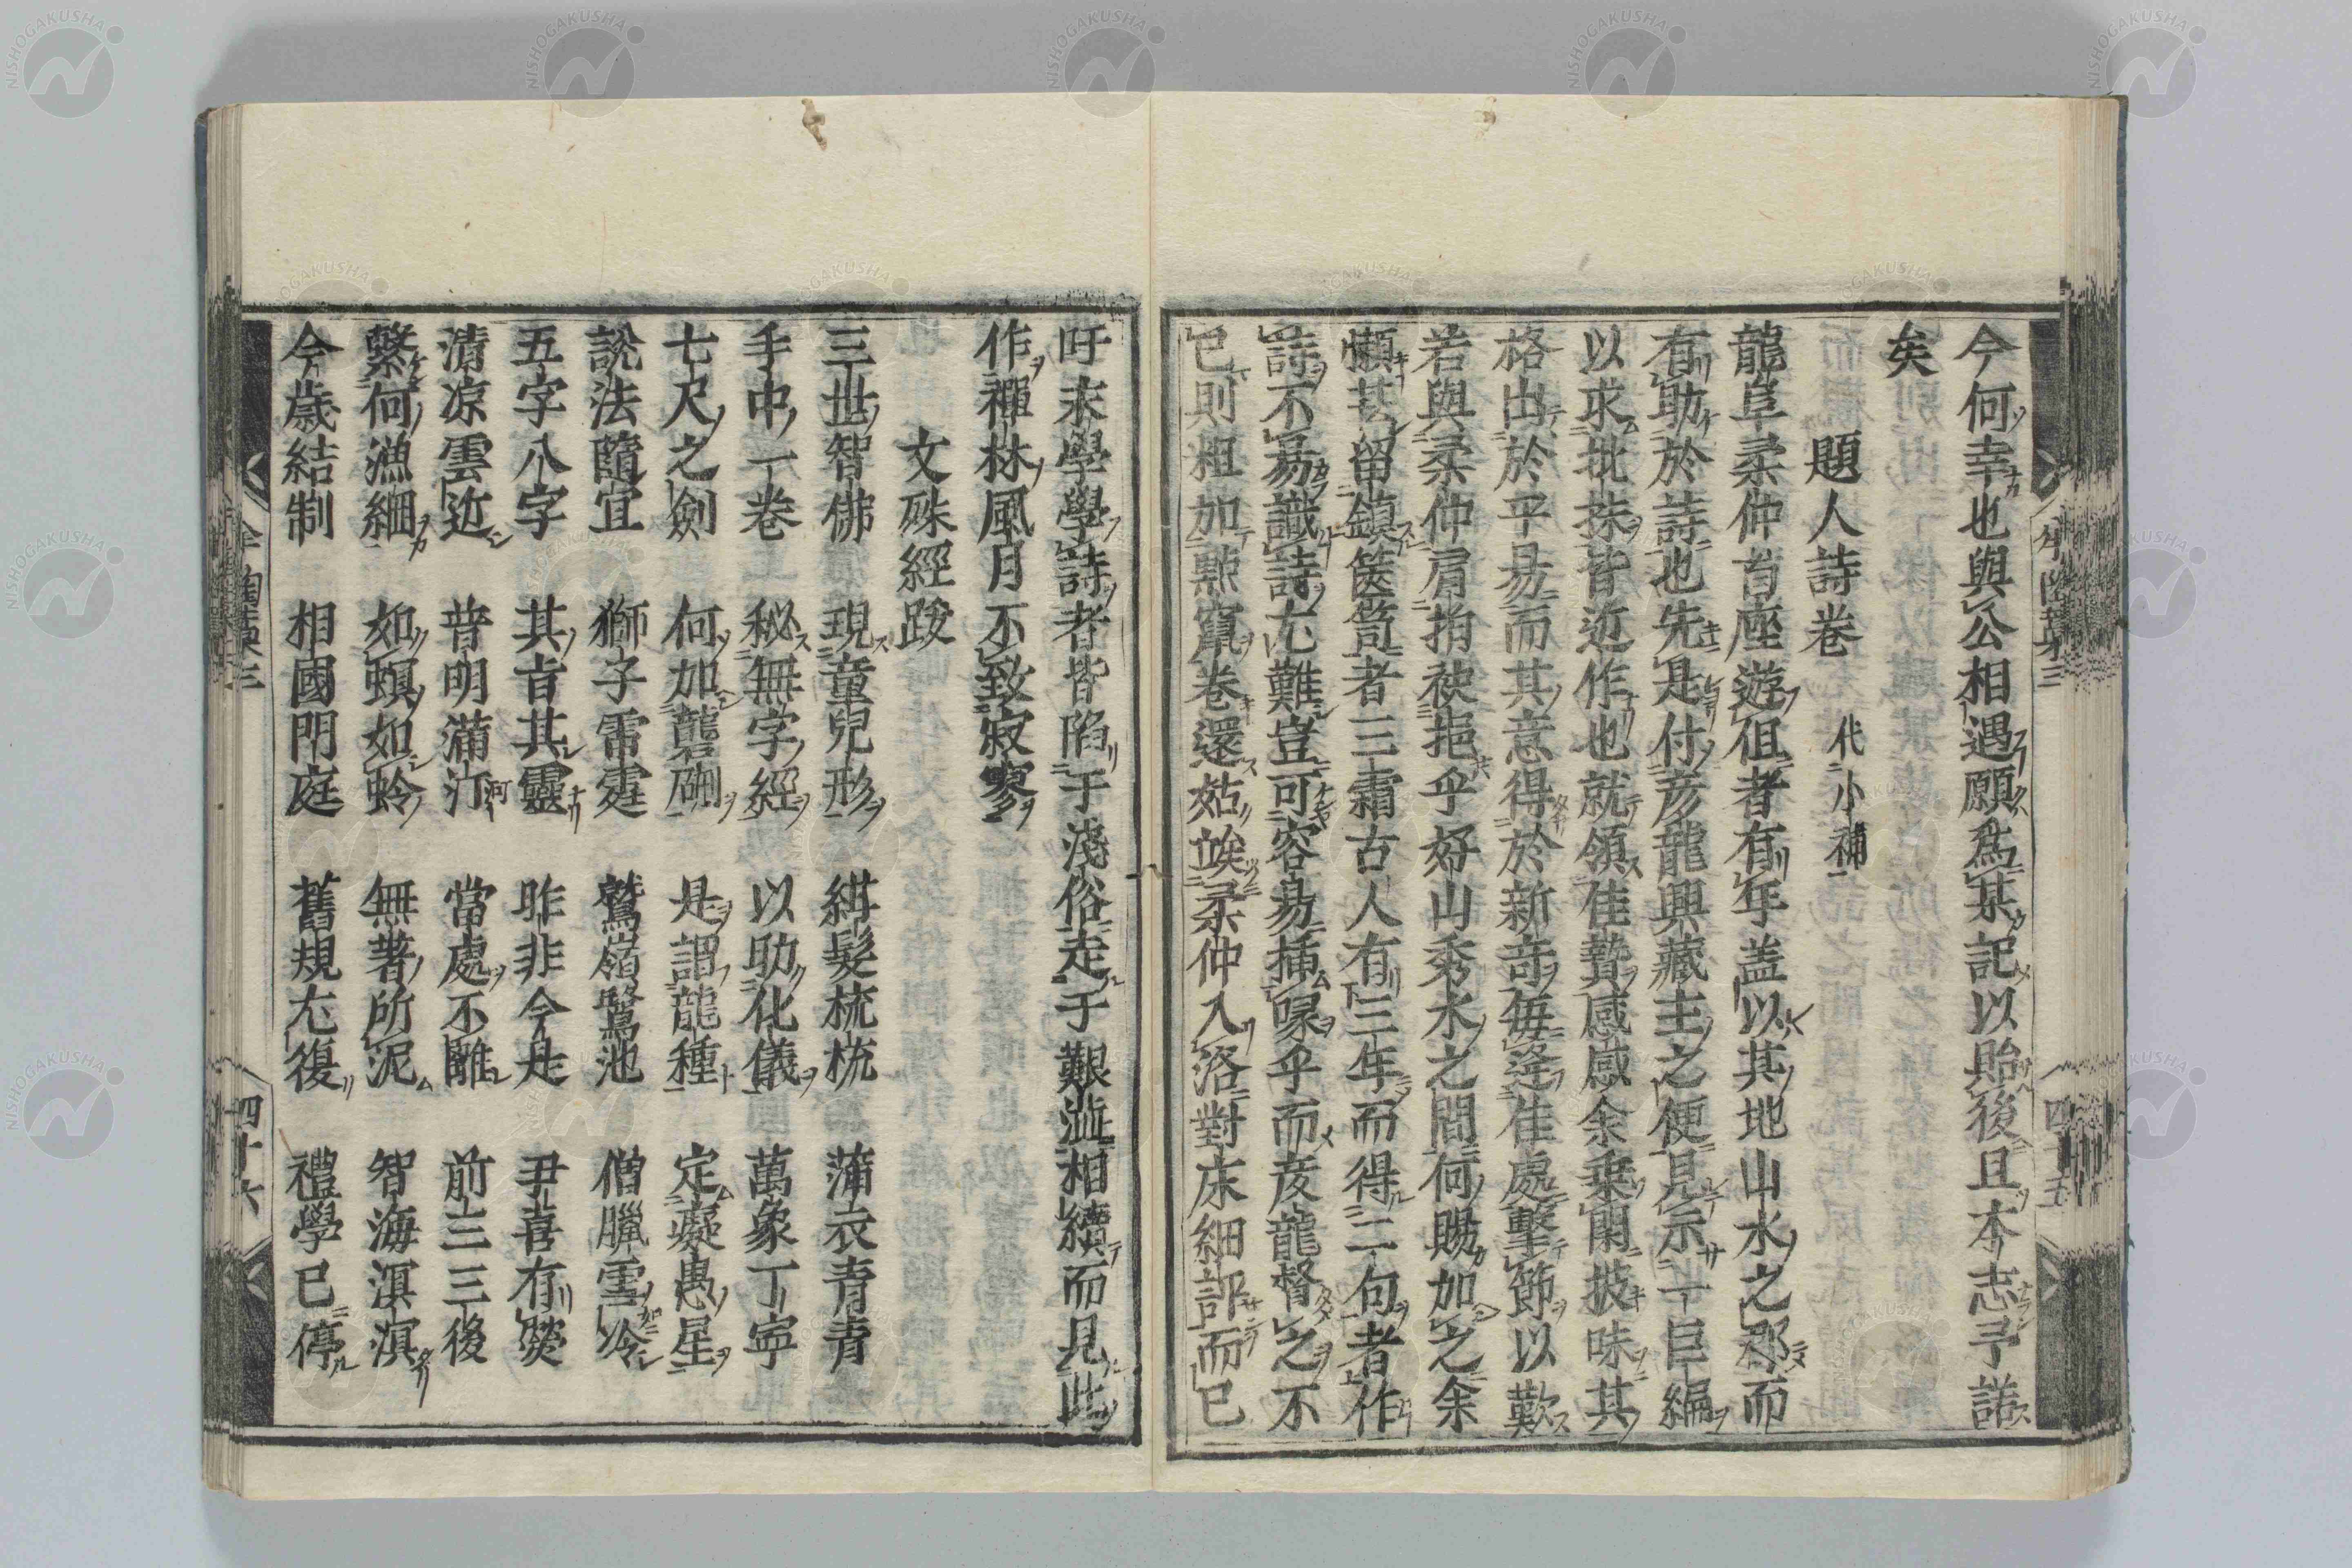 今何幸也與公相遇願爲某記以貽後且本志予諾
矣
題人詩卷 代小補
龍阜柔仲首座遊徂者有年盖以其地山水之郡而
有助於詩也先是付彥龍興藏主之便見示一巨編
以求批抹皆近作也就領佳贄感感余乘閑披味其
格出於平易而其意得於新奇每逢佳處擊節以歎
若與柔仲肩拍袂挹乎好山秀水之間何賜加之余
懶甚留鎮篋笥者三霜古人有三年而得二句者作
詩不易識詩尤難豈可容易插喙乎而彥龍督之不
已則粗加點竄卷還姑竢柔仲入洛對床細評而已
吁末學學詩者皆陷于淺俗走于艱澁相續而見此
作禪林風月不致寂寥
文殊經跋
三世智佛 現童兒形 絣髮梳梳 蒲衣青青
手中一卷 秘無字經 以助化儀 萬象丁寧
七尺之劍 何加礱硎 是謂龍種 定癡愚星
說法隨宜 獅子雷霆 鷲嶺鷺池 僧臘雪冷
五字八字 其旨其靈 昨非今是 尹喜有燚
清凉雲近 普明滿汀 當處不離 前三三後
繫何漁綱 如螟如蛉 無著所泥 智海溟溟
今歲結制 相國門庭 舊規尤復 禮學已停
四十六
NISHOGAKUSHA